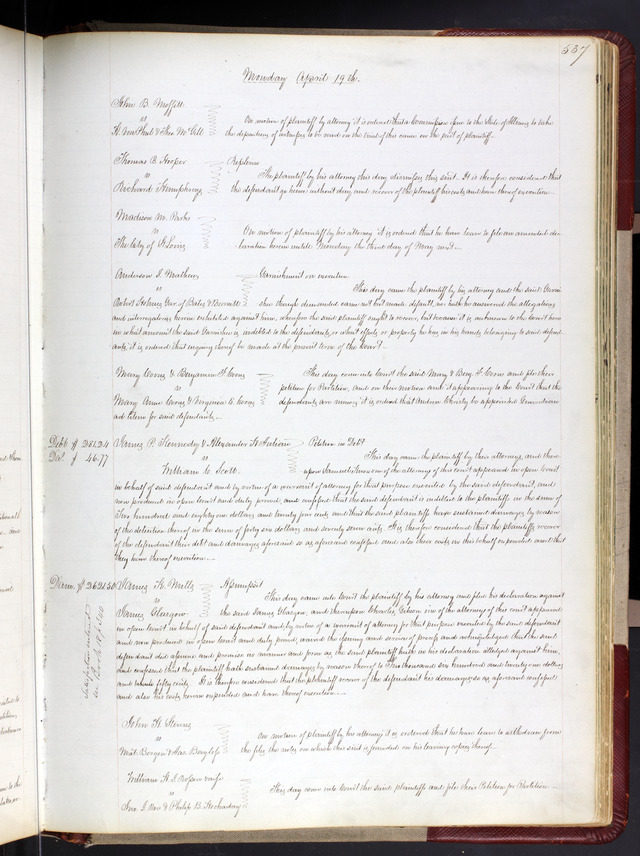 537
Monday April 19th.
John B. Moffitt
vs
On motion of plaintiff by attorney it is ordered that a Commission issue to the State of Illinois to take
the depositions of witnesses to be read on the trial of this cause on the part of plaintiff.
Thomas B. Hooper Replevin
vs
The plaintiff by his attorney this day dismisses this suit. It is therefore considered that
Richard Humphreys
the defendant go hence without day and recover of the plaintiff his costs and have thereof execution.
Madison M. Parks
vs
On motion of plaintiff by his attorney it is ordered that he have leave to file an amended de-
The City of St Louis
claration herein until Monday the third day of May next.
Anderson J. Mathews Garnishment on execution
vs
This day came the plaintiff by his attorney and the said Garni-
Robert Holmes Gar. of Bates &
shee though demanded came not but made default, nor hath he answered the allegations
and interrogatories herein exhibited against him, wherefore the said plaintiff ought to recover, but because it is unknown to the Court here
in what amount the said Garnishee is indebted to the defendants, or what effects or property he has in his hands belonging to said defend-
ants, it is ordered that inquiry thereof be made at the present term of the Court.
Mary Evans & Benjamin F. Evans
vs
This day come into Court the said Mary & Benj. F. Evans and file their
petition for Partition, and on their motion and it appearing to the Court that the
Mary Anne Evans & Virginia C. Evans
defendants are minors, it is ordered that Andrew Christy be appointed Guardian
ad litem for said defendants.
Debt $281.24 James P. Kennedy & Alexander H. Petition in Debt
Da. $46.77 vs
This day came the plaintiffs by their attorney, and there-
William C. Scott.
upon Samuel one of the attorneys of this court appeared in open Court
in behalf of said defendant and by virtue of a warrant of attorney for that purpose executed by the said defendant, and
now produced in open court and duly proved, and confessed that the said defendant is indebted to the plaintiffs in the sum of
Two hundred and eighty one dollars and twenty four cents and that the said plaintiffs have sustained damages by reason
of the detention thereof in the sum of forty six dollars and seventy seven cents. It is therefore considered that the plaintiffs recover
of the defendant their debt and damages aforesaid so as aforesaid confessed and also their costs in this behalf expended and that
they have thereof execution.
Dam. $2621.50 James H. Mills Assumpsit
vs
This day came into Court the plaintiff by his attorney and files his declaration against
James Glasgow
the said James Glasgow, and thereupon Charles Gibson one of the attorneys of this court appeared
in open Court in behalf of said defendant and by virtue of a warrant of attorney for that purpose executed by the said defendant
and now produced in open Court and duly proved, waived the issuing and service of process and acknowledged that the said
defendant did assume and promise in manner and form as the said plaintiff hath in his declaration alleged against him,
and confessed that the plaintiff hath sustained damages by reason thereof to Two thousand six hundred and twenty one dollars
and fifty cents. It is therefore considered that the plaintiff recover of the defendant his damages so as aforesaid confessed
and also his costs herein expended and have thereof execution.
Satisfaction entered
in Book
John H. Stevens
vs
On motion of plaintiff by his attorney it is ordered that he have leave to withdraw from
the files the notes on which this suit is founded on his leaving copies thereof.
William H. & wife
vs
This day come into Court the said plaintiffs and file their Petition for Partition.
& Philip B.